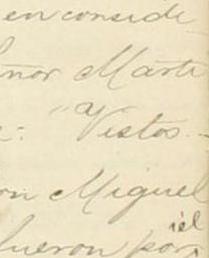 en conside
eñor Marti
"Vistos.-
on Miguel
iél
fueron por